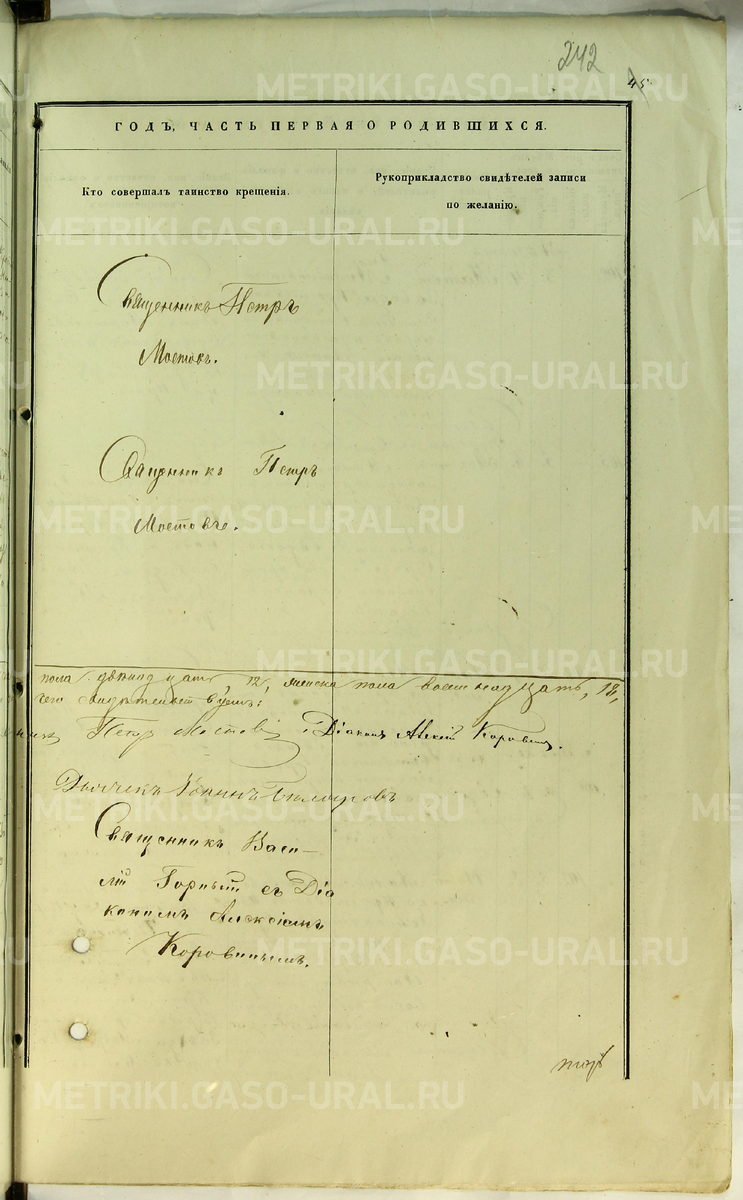 242
45
ГОДЪ, ЧАСТЬ ПЕРВАЯ О РОДИВШИХСЯ.
Кто совершалъ таинство крещенія.
Рукоприкладство свидѣтелей записи
по желанію.
Священникъ Петръ
Мостовъ.
Священникъ Петръ
Мостовъ.
пола двенадцать, 12, женска пола восемнадцать, 18,
чего
Петръ Мостовъ, Діаконъ Алексій Коровинъ.
Дьячекъ
Священникъ Васи-
лій Горный съ Діа
кономъ Алексіемъ
Коровинымъ.
METRIKI.GASO-URAL.RU